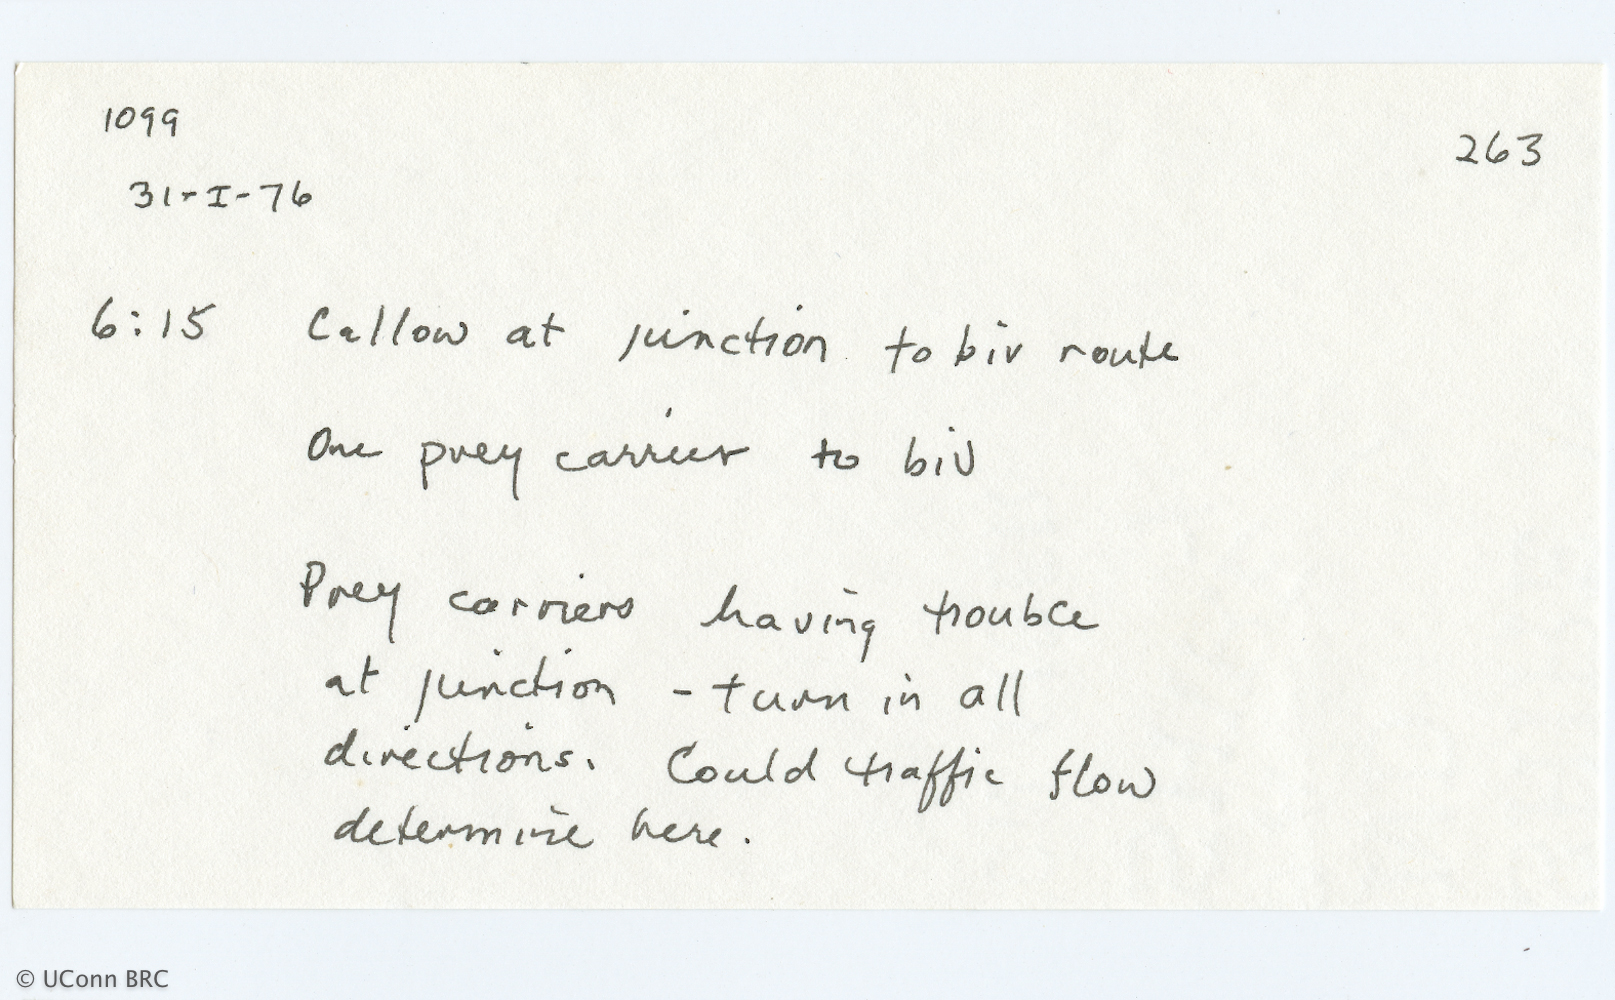 1099
263
31-I-76
6:15 Callow at junction to biv route
One prey carrier to biv
Prey carriers having trouble
at junction - turn in all
directions. Could traffic flow
determine here.
© UConn BRC